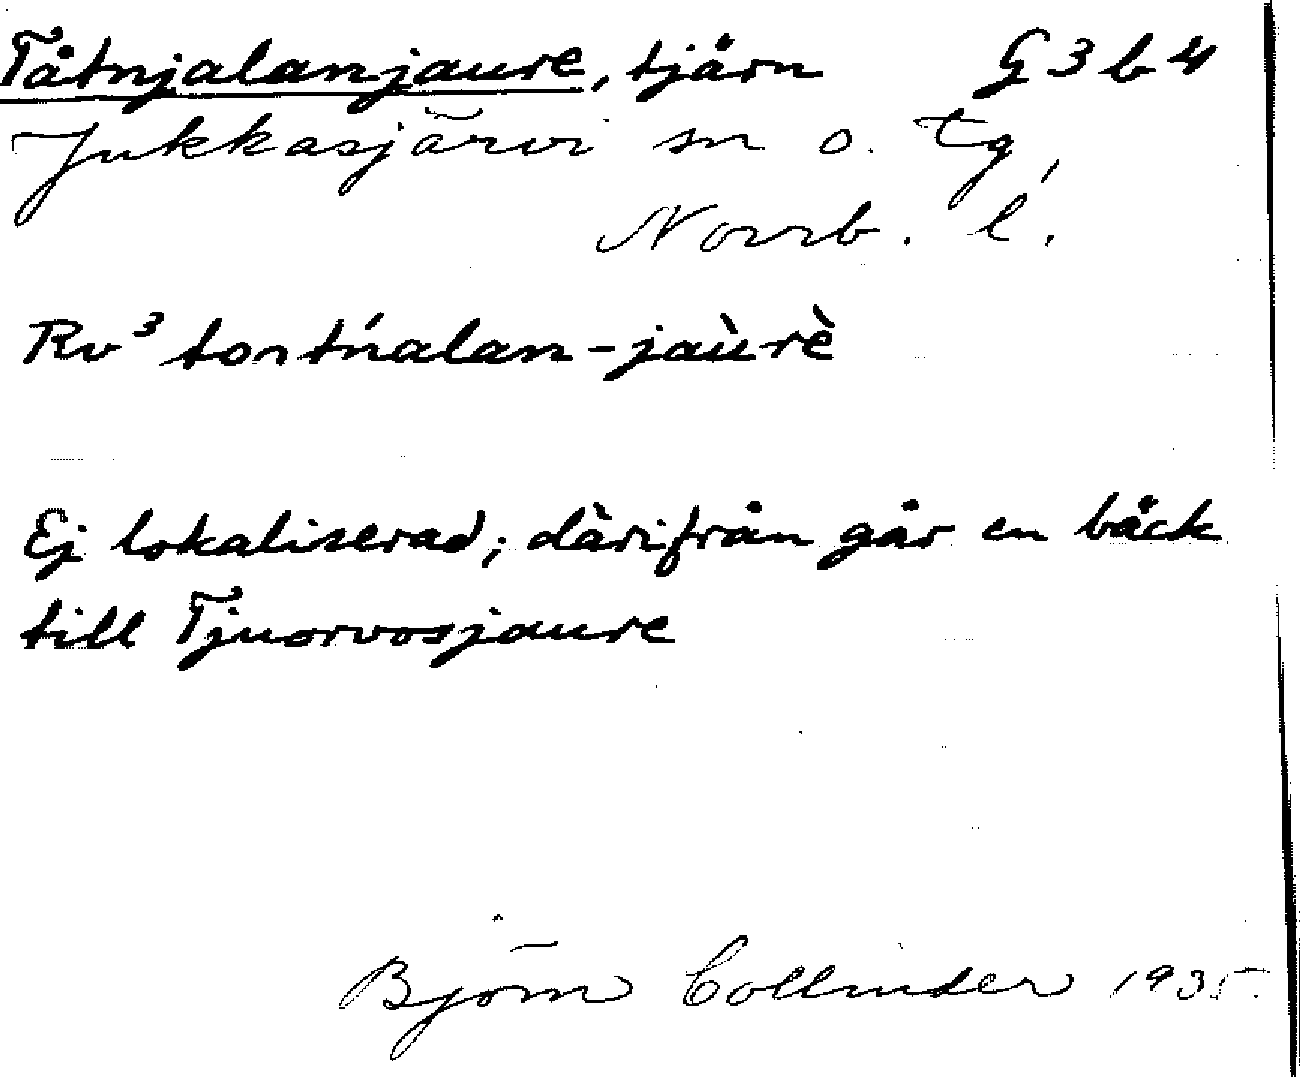 Tåtnjalanjaure, tjärn G3b4
Jukkasjärvi sn o. tg,
Norrb. l.
Rv³ tontńalan-jaùrè
Ej lokaliserad; därifrån går en bäck
till Tjuorvosjaure
Björn Collinder 1935.